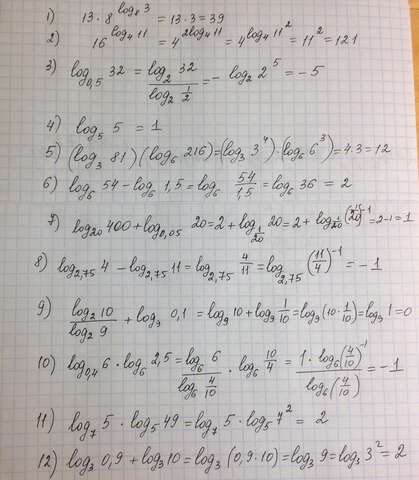 1) 13·8^{log_8 3} = 13·3 = 39
2) 16^{log_4 11} = 4^{2log_4 11} = 4^{log_4 11^2} = 11^2 = 121
3) log_{0,5} 32 = \frac{log_2 32}{log_2 \frac{1}{2}} = - log_2 2^5 = -5
4) log_5 5 = 1
5) (log_3 81)(log_6 216) = (log_3 3^4)·(log_6 6^3) = 4·3 = 12
6) log_6 54 - log_6 1,5 = log_6 \frac{54}{1,5} = log_6 36 = 2
7) log_{20} 400 + log_{0,05} 20 = 2 + log_{\frac{1}{20}} 20 = 2 + log_{\frac{1}{20}} (\frac{1}{20})^{-1} = 2-1 = 1
8) log_{2,75} 4 - log_{2,75} 11 = log_{2,75} \frac{4}{11} = log_{2,75} (\frac{11}{4})^{-1} = -1
9) \frac{log_2 10}{log_2 9} + log_9 0,1 = log_9 10 + log_9 \frac{1}{10} = log_9 (10·\frac{1}{10}) = log_9 1 = 0
10) log_{0,4} 6 · log_6 2,5 = \frac{log_6 6}{log_6 \frac{4}{10}} · log_6 \frac{10}{4} = \frac{1·log_6 (\frac{4}{10})^{-1}}{log_6 (\frac{4}{10})} = -1
11) log_7 5 · log_5 49 = log_7 5 · log_5 7^2 = 2
12) log_3 0,9 + log_3 10 = log_3 (0,9·10) = log_3 9 = log_3 3^2 = 2